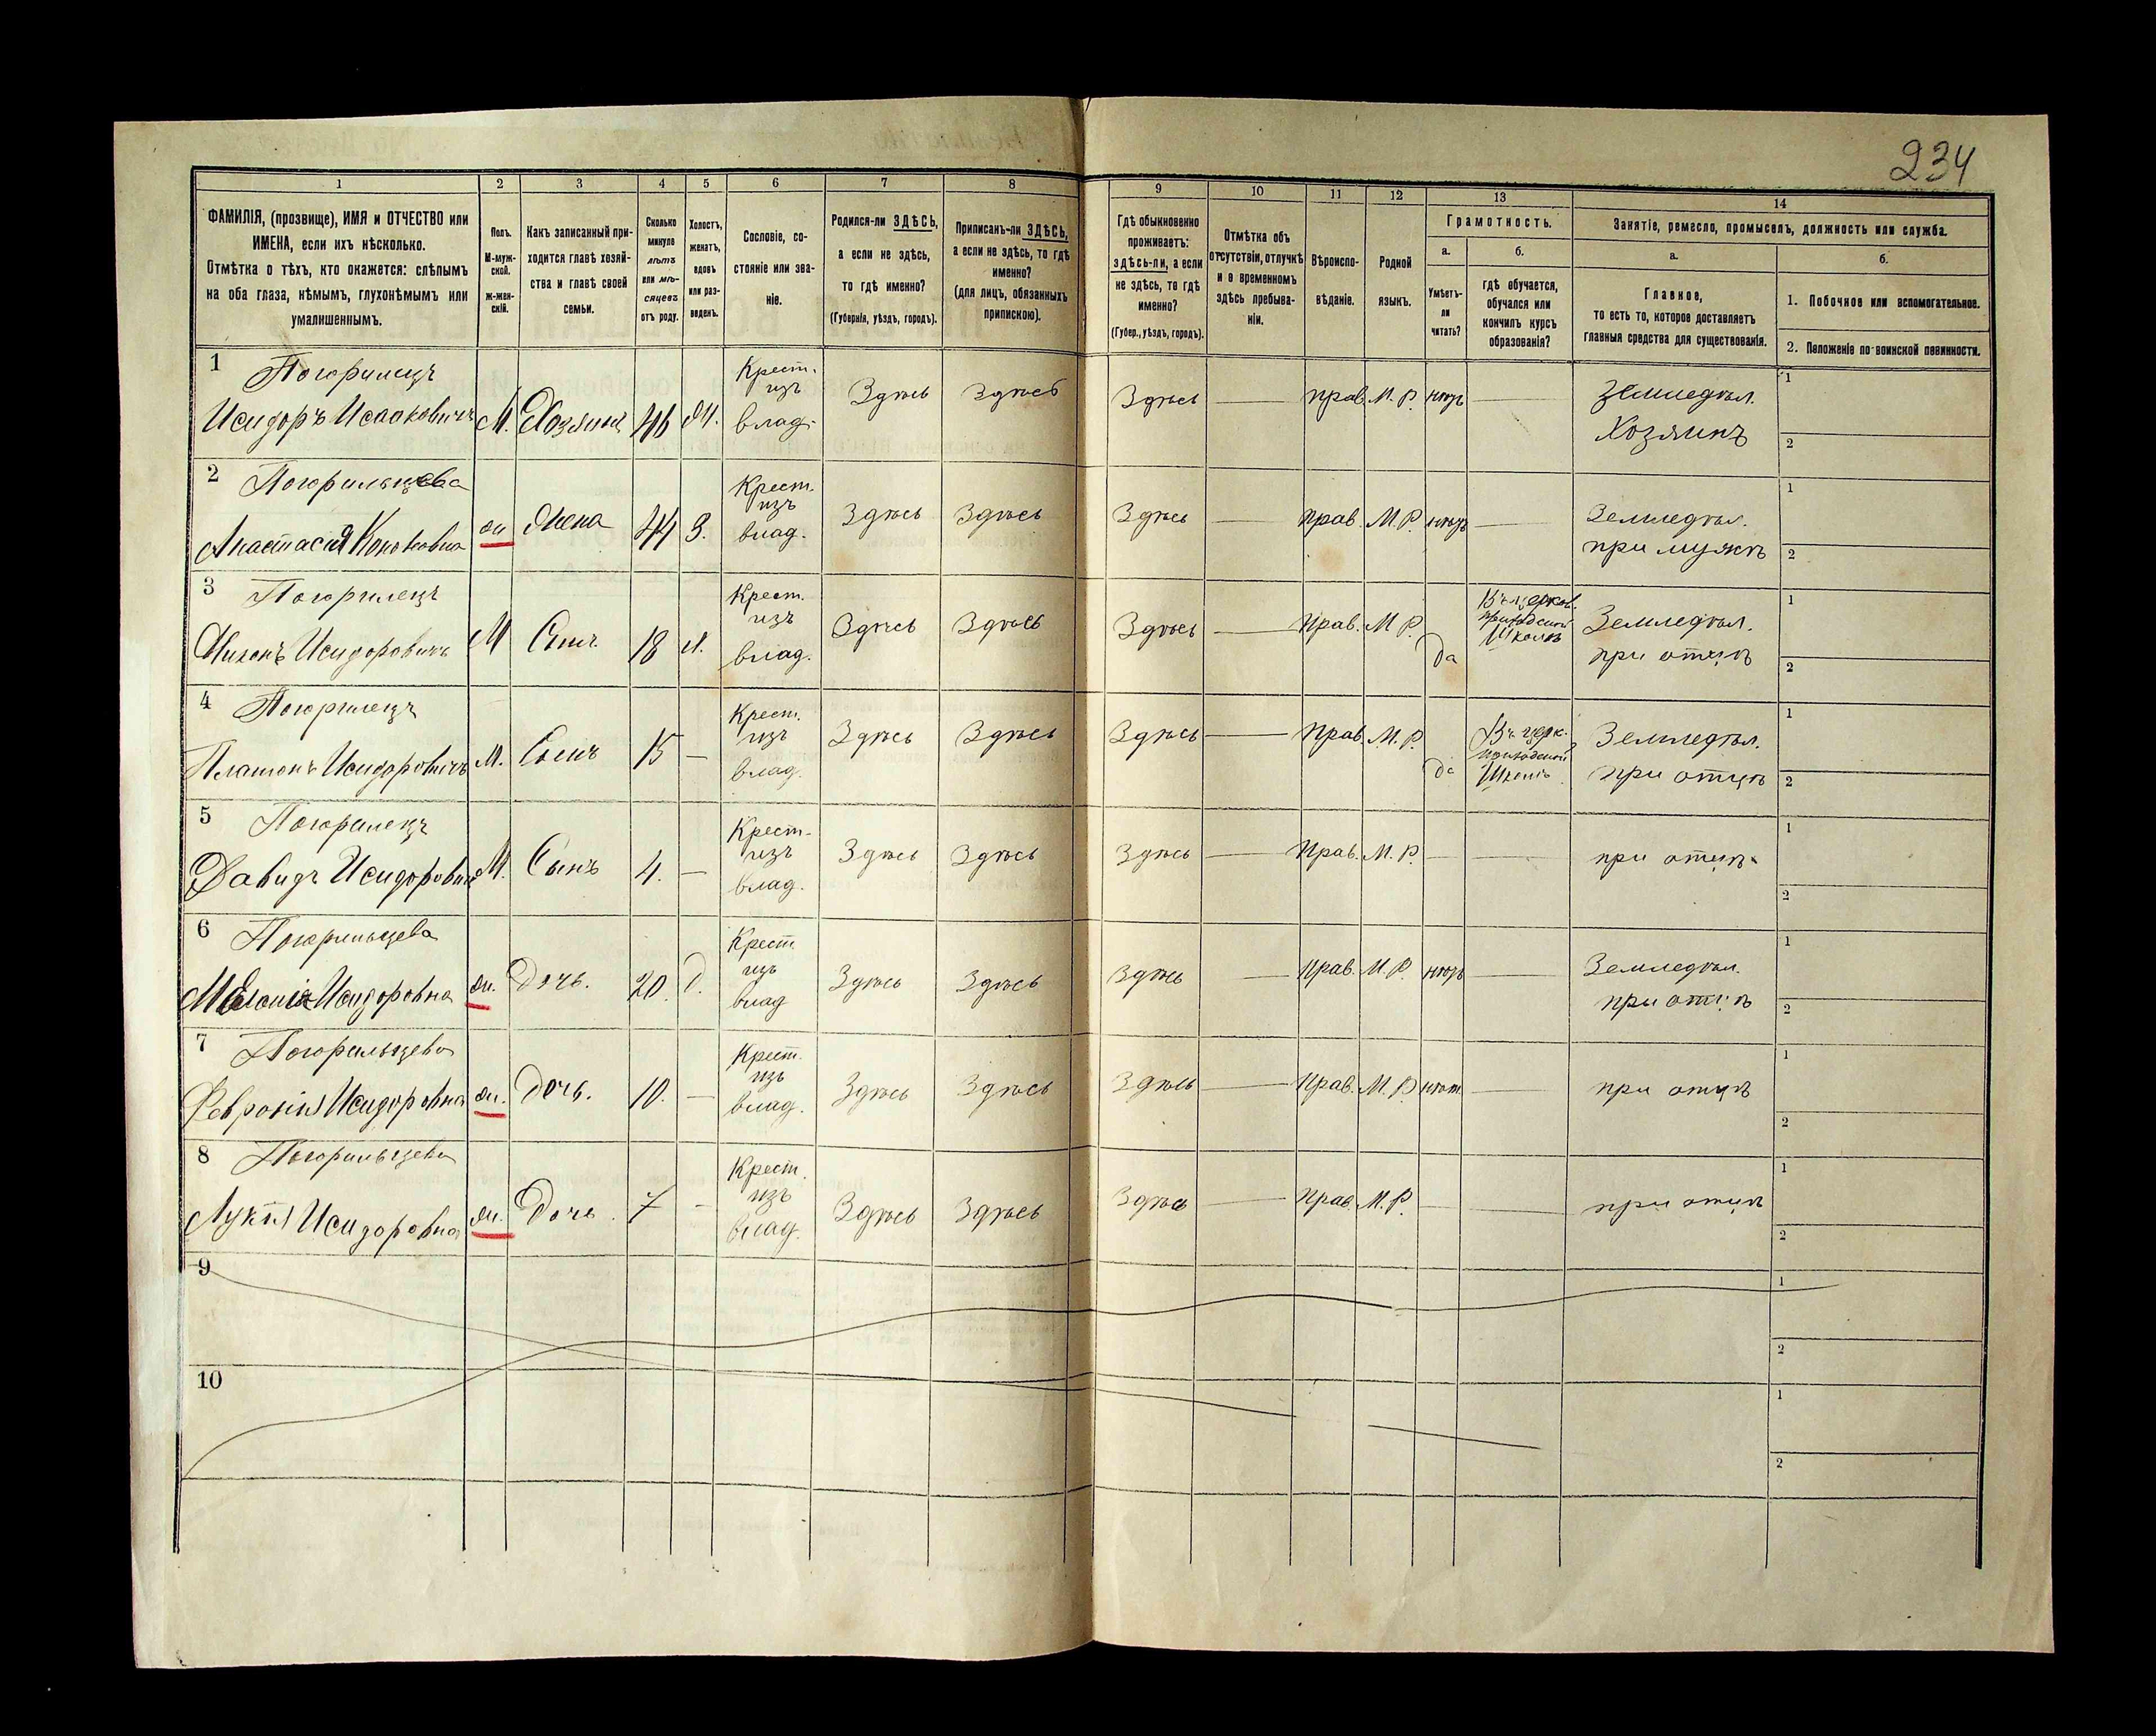 234
1 2 3 4 5 6 7 8 9 10 11 12 13 14
ФАМИЛІЯ, (прозвище), ИМЯ и ОТЧЕСТВО или
ИМЕНА, если ихъ нѣсколько.
Отмѣтка о тѣхъ, кто окажется: слѣпымъ
на оба глаза, нѣмымъ, глухонѣмымъ или
умалишеннымъ.
Полъ.
М-муж-
ской.
ж-жен-
скій.
Какъ записанный при-
ходится главѣ хозяй-
ства и главѣ своей
семьи.
Сколько
минуло
лѣтъ
или мѣ-
сяцевъ
отъ роду.
Холостъ,
женатъ,
вдовъ
или раз-
веденъ.
Сословіе, со-
стояніе или зва-
ніе.
Родился-ли ЗДѢСЬ,
а если не здѣсь,
то гдѣ именно?
(Губернія, уѣздъ, городъ).
Приписанъ-ли ЗДѢСЬ,
а если не здѣсь, то гдѣ
именно?
(для лицъ, обязанныхъ
припискою).
Гдѣ обыкновенно
проживаетъ:
здѣсь-ли, а если
не здѣсь, то гдѣ
именно?
(Губер., уѣздъ, городъ).
Отмѣтка объ
отсутствіи, отлучкѣ
и о временномъ
здѣсь пребыва-
ніи.
Вѣроиспо-
вѣданіе.
Родной
языкъ.
Грамотность.
а.
Умѣетъ-
ли
читать?
б.
гдѣ обучается,
обучался или
кончилъ курсъ
образованія?
Занятіе, ремесло, промыселъ, должность или служба.
а.
Главное,
то есть то, которое доставляетъ
главныя средства для существованія.
б.
1. Побочное или вспомогательное.
2. Положеніе по воинской повинности.
1 Погорилецъ Крест. 1
Исидоръ Исааковичъ М. Хозяинъ 46 Ж. изъ влад. Здѣсь Здѣсь Здѣсь — прав. М. Р. нѣтъ — Земледѣл. Хозяинъ 2
2 Погорильцева Крест. 1
Анастасія ж. Жена 44 З. изъ влад. Здѣсь Здѣсь Здѣсь — прав. М. Р. нѣтъ — Земледѣл. при мужѣ 2
3 Погорилецъ Крест. 1
Исидоровичъ М Сынъ 18 изъ влад. Здѣсь Здѣсь Здѣсь — прав. М Р. да Въ церков. приходской школѣ Земледѣл. при отцѣ 2
4 Погорилецъ Крест. 1
Платонъ Исидоровичъ М. Сынъ 15 — изъ влад. Здѣсь Здѣсь Здѣсь — прав. М. Р. да Въ церк. приходской школѣ Земледѣл. при отцѣ 2
5 Погорилецъ Крест. 1
Давидъ Исидоровичъ М. Сынъ 4. — изъ влад. Здѣсь Здѣсь Здѣсь — прав. М. Р. — — при отцѣ 2
6 Погорильцева Крест. 1
Исидоровна ж. Дочь. 20. Д. изъ влад Здѣсь Здѣсь Здѣсь — прав. М. Р. нѣтъ — Земледѣл. при отцѣ 2
7 Погорильцева Крест. 1
Февронія Исидоровна ж. Дочь. 10. — изъ влад. Здѣсь Здѣсь Здѣсь — прав. М. Р. нѣт. — при отцѣ 2
8 Погорильцева Крест. 1
Лукія Исидоровна ж. Дочь. 7 — изъ влад. Здѣсь Здѣсь Здѣсь — прав. М. Р. — — при отцѣ 2
9 1
2
10 1
2